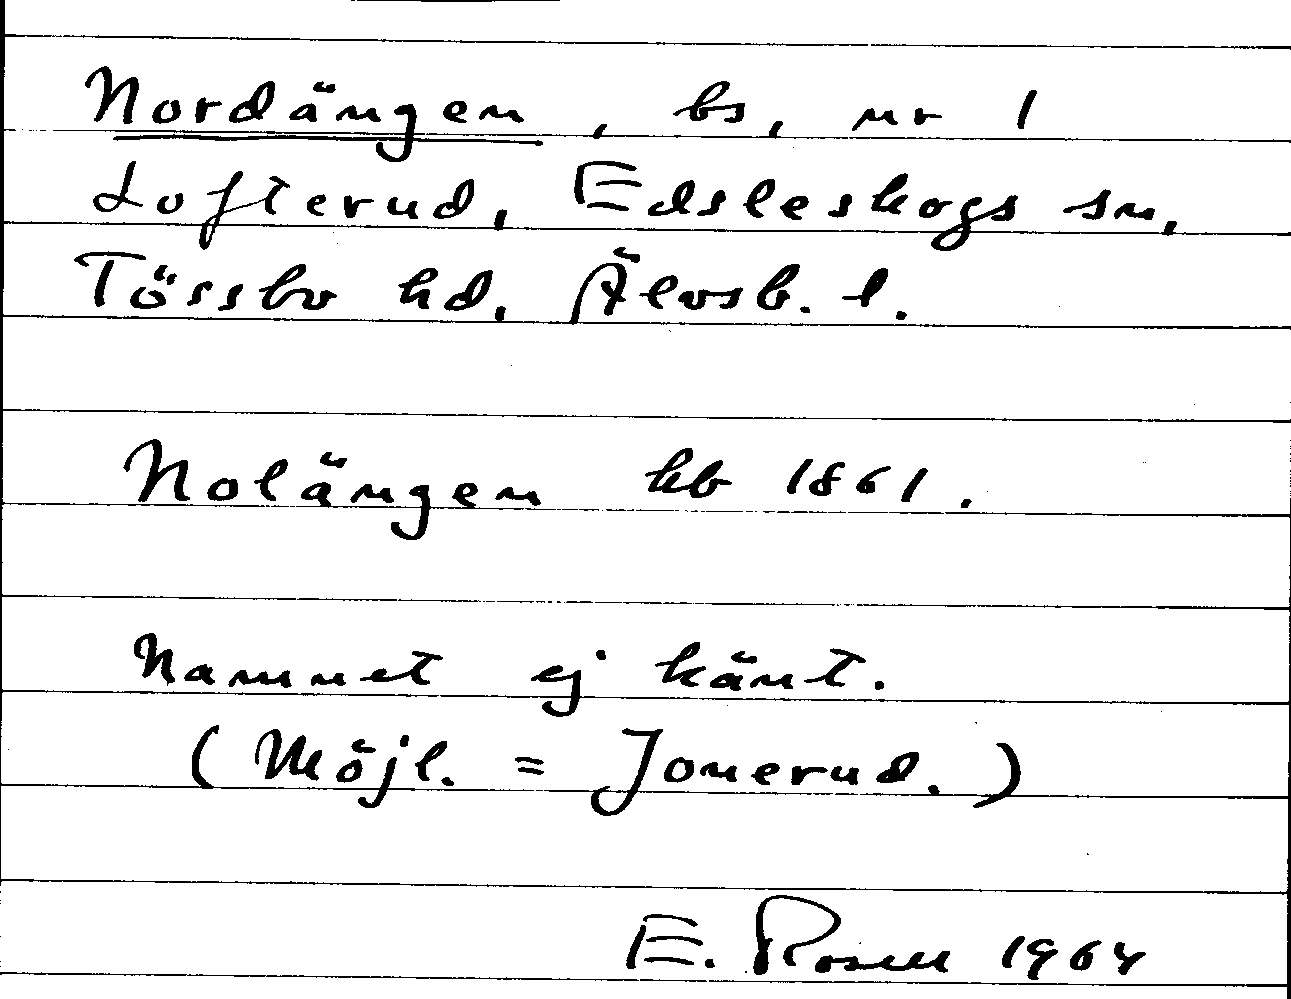 Nordängen, bs, nr 1
Lofterud, Edsleskogs sn,
Tössbo hd, Älvsb. l.
Nolängen kb 1861.
Namnet ej känt.
(Möjl. = Jonerud.)
E. Rosen 1964